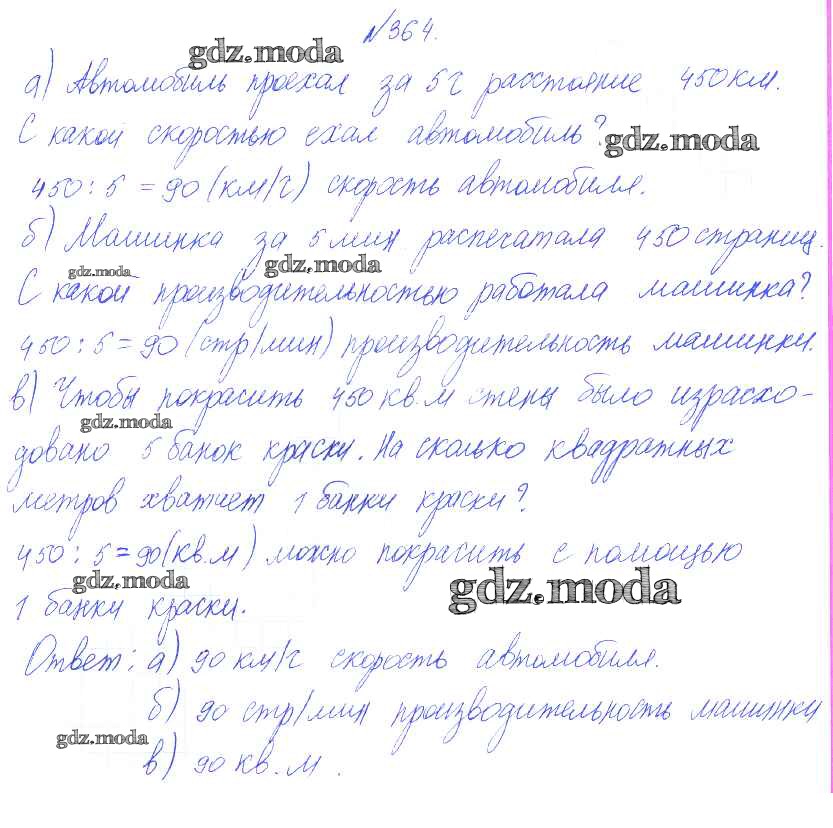 №364.
gdz.moda
а) Автомобиль проехал за 5 г расстояние 450 км.
С какой скоростью ехал автомобиль?
gdz.moda
450 : 5 = 90 (км/г) скорость автомобиля.
б) Машинка за 5 мин распечатала 450 страниц.
gdz.moda gdz.moda
С какой производительностью работала машинка?
450 : 5 = 90 (стр/мин) производительность машинки.
в) Чтобы покрасить 450 кв.м стены было израсхо-
gdz.moda
довано 5 банок краски. На сколько квадратных
метров хватит 1 банки краски?
450 : 5 = 90 (кв.м) можно покрасить с помощью
gdz.moda gdz.moda
1 банки краски.
Ответ: а) 90 км/г скорость автомобиля.
б) 90 стр/мин производительность машинки
gdz.moda
в) 90 кв.м.